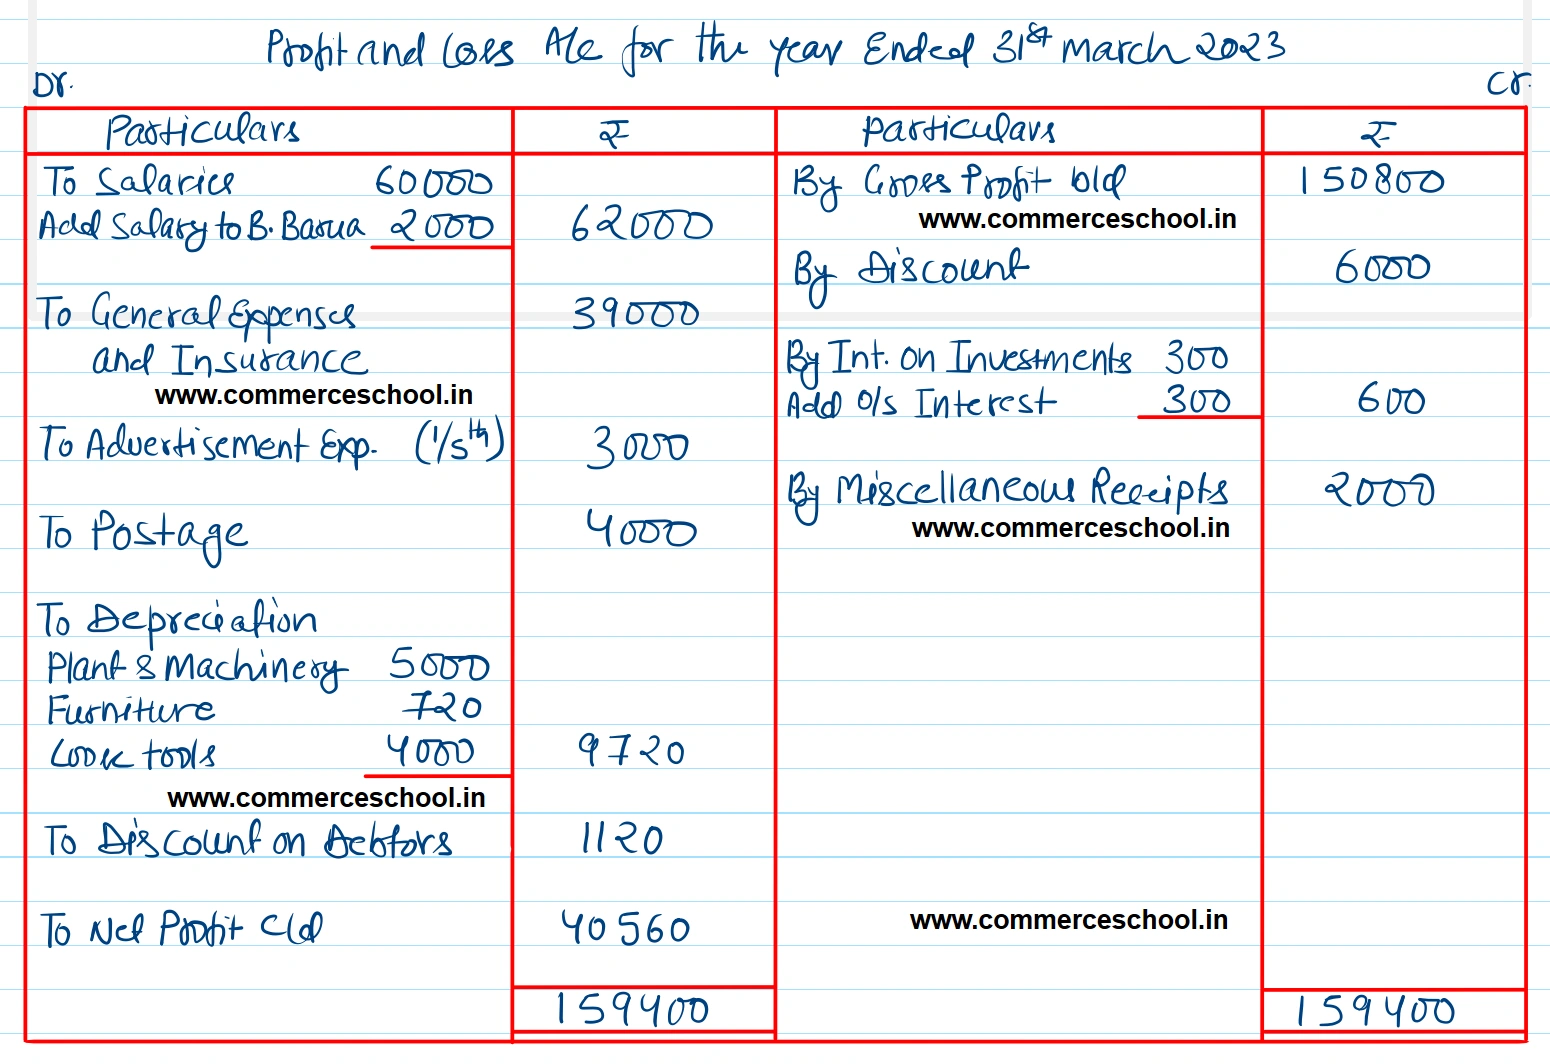 Profit and Loss A/c for the year Ended 31st March 2023
Dr. Cr.
Particulars ₹ Particulars ₹
To Salaries 60000 By Gross Profit b/d 150800
www.commerceschool.in
Add Salary to B. Barua 2000 62000
By Discount 6000
To General Expenses 39000
and Insurance By Int. on Investments 300
www.commerceschool.in
Add O/s Interest 300 600
To Advertisement Exp. (1/5th) 3000
By Miscellaneous Receipts 2000
To Postage 4000 www.commerceschool.in
To Depreciation
Plant & Machinery 5000
Furniture 720
Loose tools 4000 9720
www.commerceschool.in
To Discount on Debtors 1120
To Net Profit c/d 40560 www.commerceschool.in
159400 159400